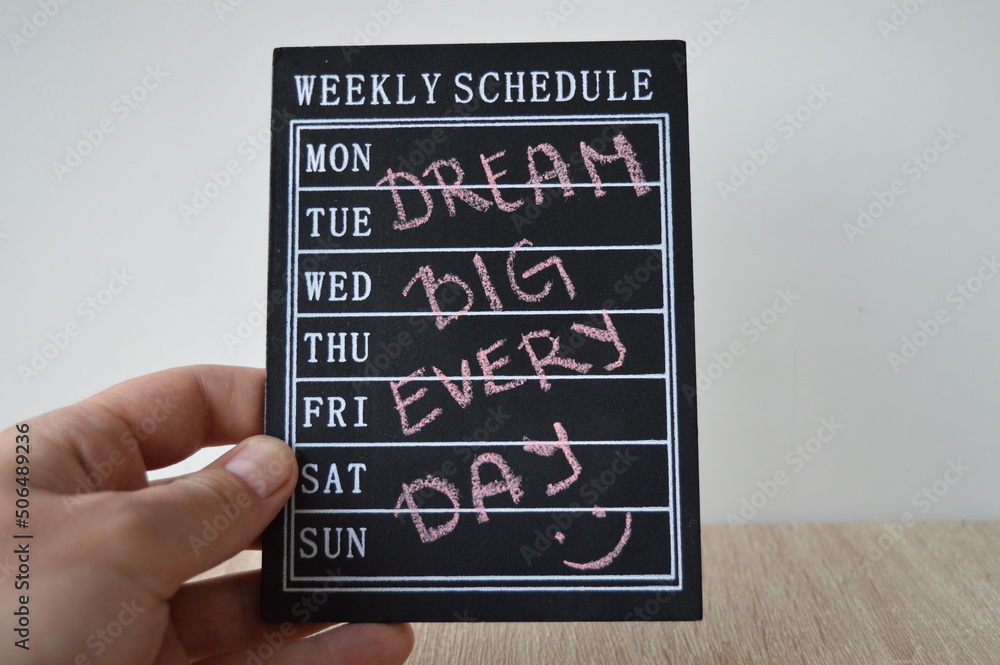 WEEKLY SCHEDULE
MON
TUE
WED
THU
FRI
SAT
SUN
DREAM
BIG
EVERY
DAY
Adobe Stock | #506489236